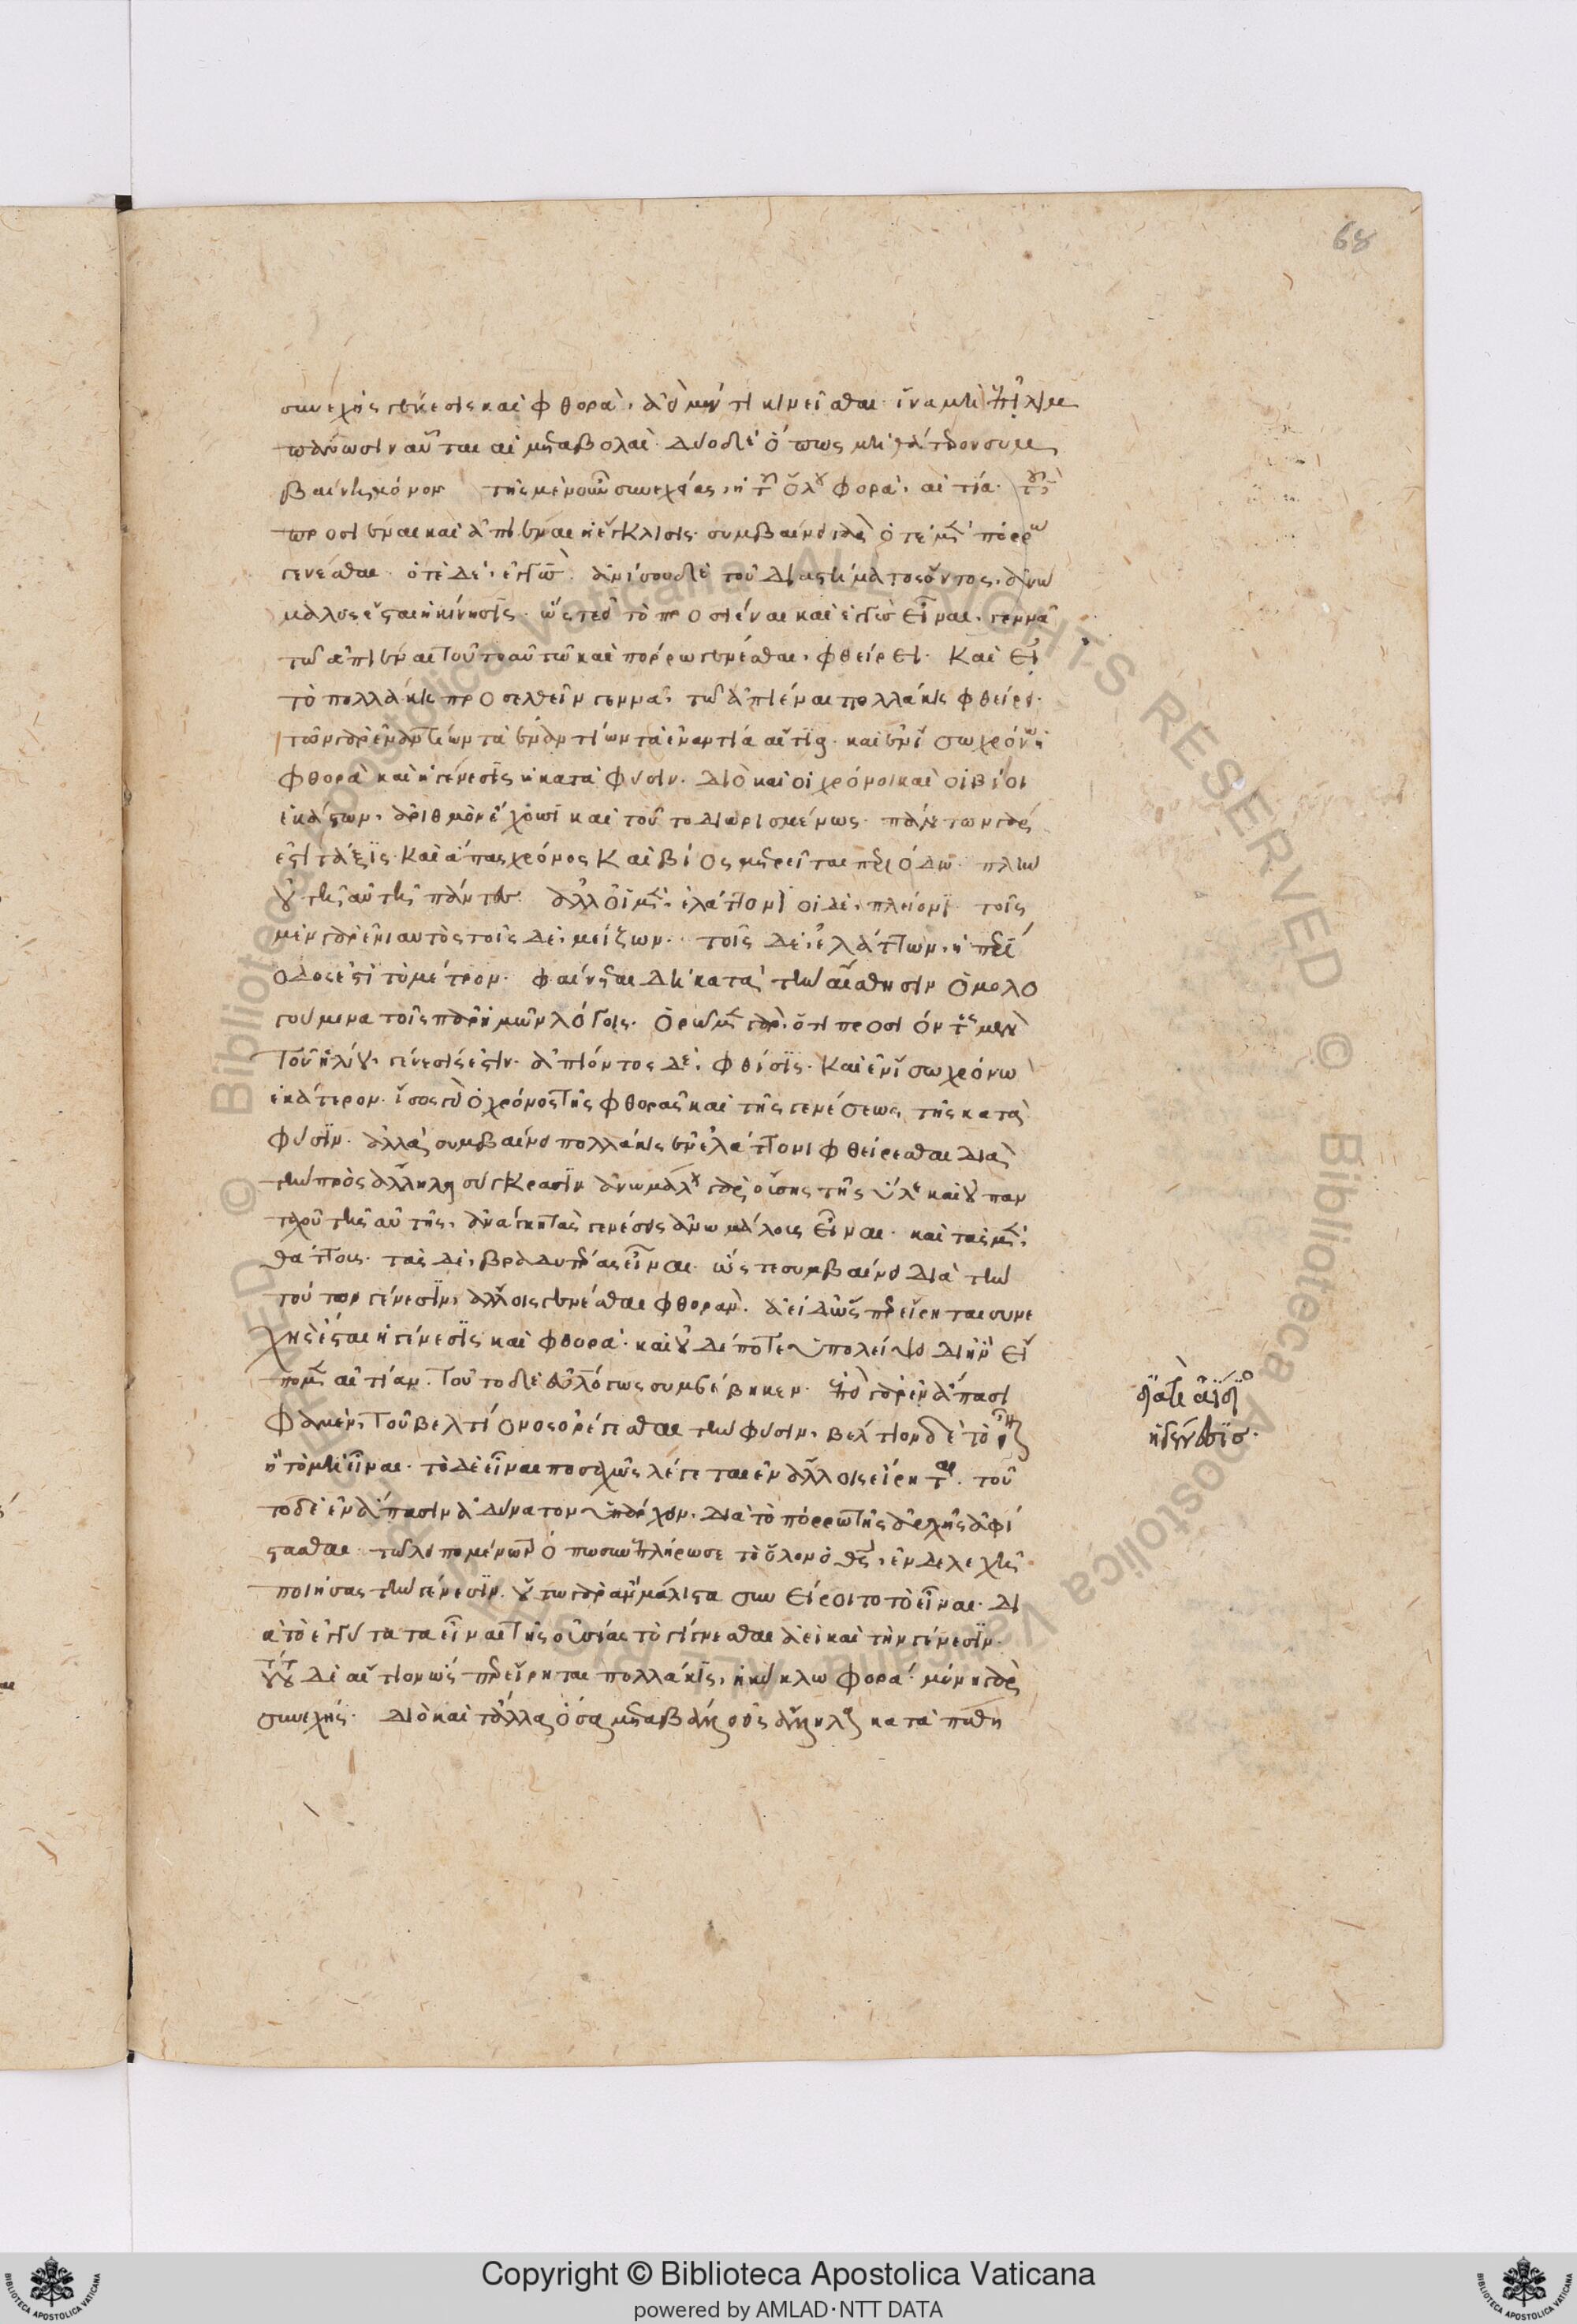 68
συνεχὴς γένεσις καὶ φθορά, ἀεὶ μέν τι κινεῖσθαι ἵνα μὴ ἐπιλίπ
ωσιν αὗται αἱ μεταβολαί· δύο δὲ ὅπως μὴ θάτερον συμ
βαίνῃ μόνον τῆς μὲν οὖν συνεχείας, ἡ τοῦ ὅλου φορά, αἰτία· τοῦ δὲ
προσιέναι καὶ ἀπιέναι ἡ ἔγκλισις· συμβαίνει γὰρ ὁτὲ μὲν πόρρω
γενέσθαι· ὁτὲ δὲ, ἐγγύς· ἀνίσου δὲ τοῦ διαστήματος ὄντος, ἀνώ
μαλος ἔσται ἡ κίνησις· ὥστε εἰ τῷ προσιέναι καὶ ἐγγὺς εἶναι, γεννᾷ
τῷ ἀπιέναι τοῦτο αὐτῶ καὶ πόρρω γενέσθαι, φθείρει· καὶ εἰ
τῷ πολλάκις προσελθεῖν γεννᾷ, τῷ ἀπιέναι πολλάκις φθείρει·
τῶν γὰρ ἐναντίων τὰ ἐναντίων τὰ ἐναντία αἴτια· καὶ ἐν ἴσω χρόνω ἡ
φθορὰ καὶ ἡ γένεσις ἡ κατὰ φύσιν. διὸ καὶ οἱ χρόνοι καὶ οἱ βίοι
ἑκάστων, ἀριθμὸν ἔχουσι καὶ τούτω διωρισμένως· πάντων γάρ
ἐστι τάξις· καὶ ἅπας χρόνος καὶ βίος μετρεῖται περιόδω· πλὴν
οὐ τῆ αὐτῆ πάντες· ἀλλ' οἱ μὲν, ἐλάττονι οἱ δὲ, πλείονι· τοῖς
μὲν γὰρ ἐνιαυτὸς τοῖς δὲ, μείζων· τοῖς δὲ, ἐλάττων, ἡ περί
οδός ἐστι τὸ μέτρον· φαίνεται δὴ κατὰ τὴν αἴσθησιν ὁμολο
γούμενα τοῖς παρ' ἡμῶν λόγοις· ὁρῶμεν γὰρ, ὅτι προσιόντος μὲν
τοῦ ἡλίου, γένεσίς ἐστιν· ἀπιόντος δὲ, φθίσις· καὶ ἐν ἴσω χρόνω
ἑκάτερον· ἴσος γὰρ ὁ χρόνος τῆς φθορᾶς καὶ τῆς γενέσεως, τῆς κατὰ
φύσιν· ἀλλὰ συμβαίνει πολλάκις ἐν ἐλάττονι φθείρεσθαι διὰ
τὴν πρὸς ἄλληλα σύγκρασιν ἀνωμάλου γὰρ οὔσης τῆς ὕλης καὶ οὐ παν
ταχοῦ τῆς αὐτῆς, ἀνάγκη τὰς γενέσεις ἀνωμάλους εἶναι· καὶ τὰς μὲν,
θάττους· τὰς δὲ, βραδυτέρας εἶναι· ὥστε συμβαίνει διὰ τὴν
τούτων γένεσιν, ἄλλοις γενέσθαι φθοράν· ἀεὶ δ' ὥσπερ εἴρηται συνε
χὴς ἔσται ἡ γένεσις καὶ φθορά· καὶ οὐδέποτε ὑπολείψει δι' ἣν εἴ
πομεν αἰτίαν· τοῦτο δὲ εὐλόγως συμβέβηκεν· ἐπεὶ γὰρ ἐν ἅπασι
φαμὲν, τοῦ βελτίονος ὀρέγεσθαι τὴν φύσιν, βέλτιον δὲ τὸ εἶναι
ἢ τὸ μὴ εἶναι· τὸ δὲ εἶναι ποσαχῶς λέγεται ἐν ἄλλοις εἴρηται· τοῦ
το δὲ ἐν ἅπασιν ἀδύνατον ὑπάρχειν· διὰ τὸ πόρρω τῆς ἀρχῆς ἀφί
στασθαι· τῷ λειπομένω τρόπω συνεπλήρωσε τὸ ὅλον ὁ θεὸς, ἐνδελεχῆ
ποιήσας τὴν γένεσιν· οὕτω γὰρ ἂν μάλιστα συνείροιτο τὸ εἶναι· δι
ὰ τὸ ἐγγύτατα εἶναι τῆς οὐσίας τὸ γίγνεσθαι ἀεὶ καὶ τὴν γένεσιν·
τούτου δὲ αἴτιον ὥσπερ εἴρηται πολλάκις, ἡ κύκλω φορά· μόνη γὰρ
συνεχής· διὸ καὶ τἄλλα ὅσα μεταβάλλει εἰς ἄλληλα κατὰ πάθη